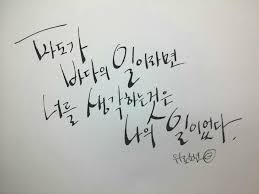 파도가
바다의 일이라면
너를 생각하는것은
나의 일이었다.